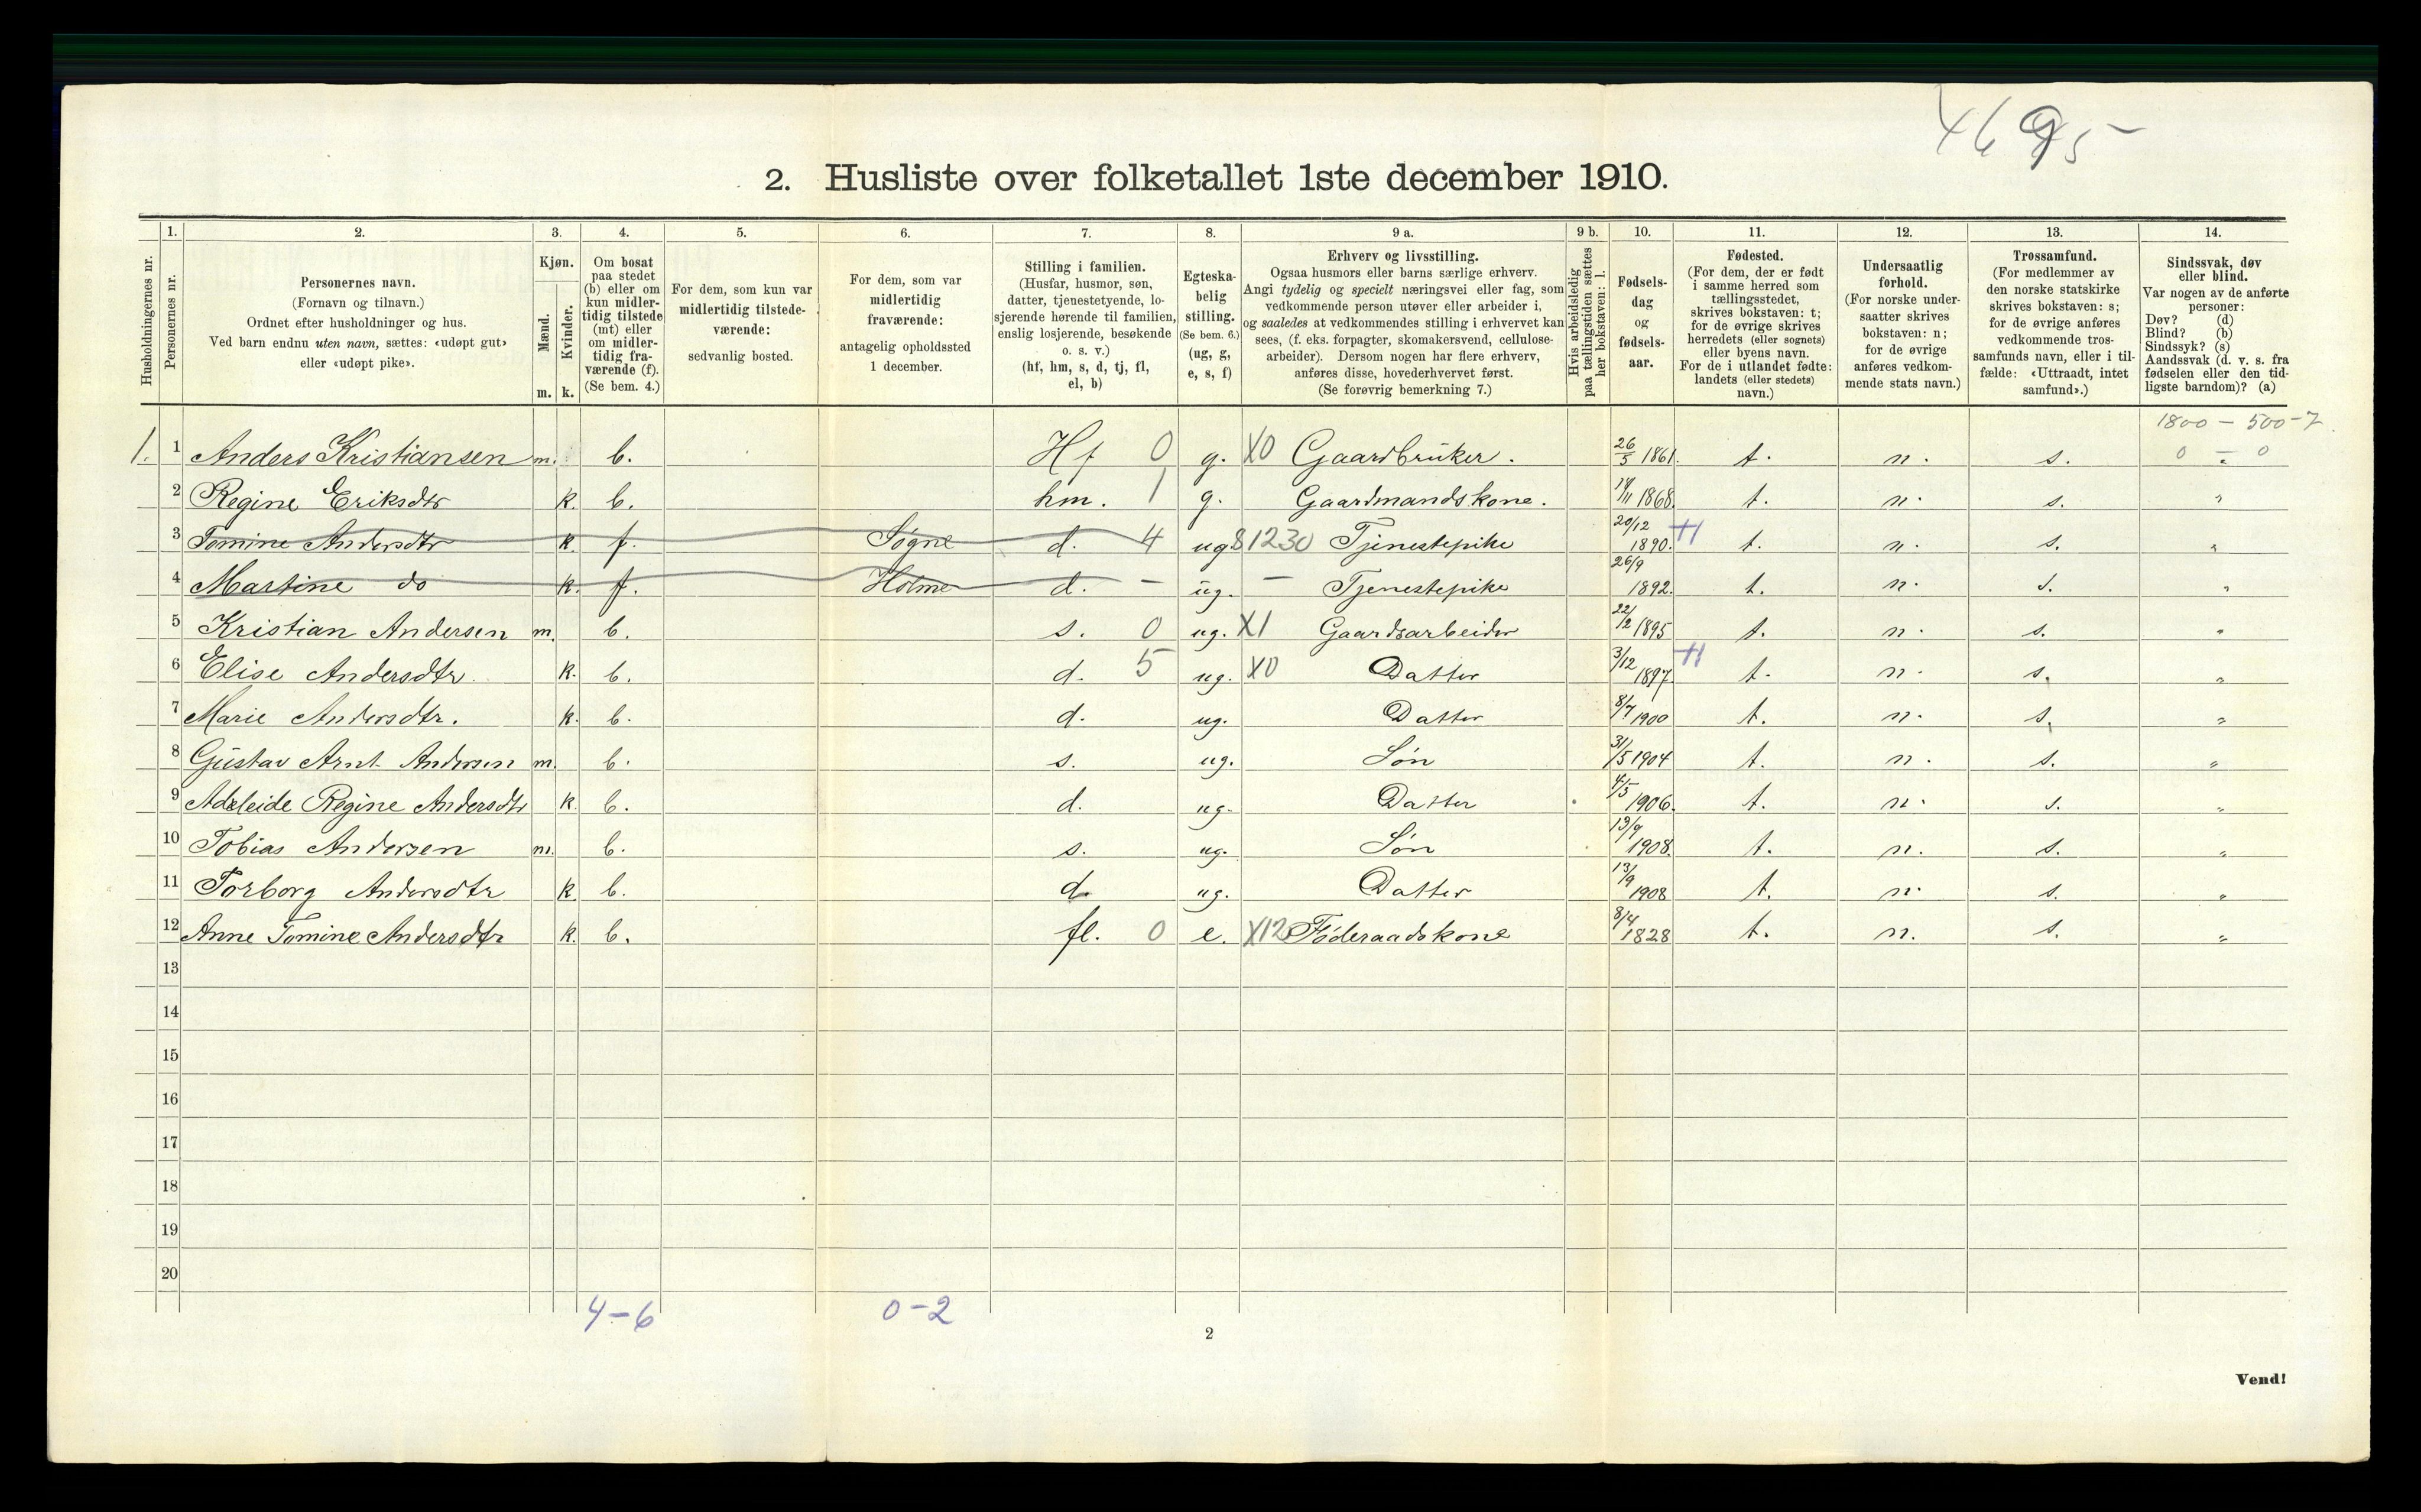 4695
2. Husliste over folketallet 1ste december 1910.
Husholdningernes nr.
1. Personernes nr.
2. Personernes navn. (Fornavn og tilnavn.) Ordnet efter husholdninger og hus. Ved barn endnu uten navn, sættes: «udøpt gut» eller «udøpt pike».
3. Kjøn. Mænd. m. Kvinder. k.
4. Om bosat paa stedet (b) eller om kun midlertidig tilstede (mt) eller om midlertidig fraværende (f). (Se bem. 4.)
5. For dem, som kun var midlertidig tilstedeværende: sedvanlig bosted.
6. For dem, som var midlertidig fraværende: antagelig opholdssted 1 december.
7. Stilling i familien. (Husfar, husmor, søn, datter, tjenestetyende, losjerende hørende til familien, enslig losjerende, besøkende o. s. v.) (hf, hm, s, d, tj, fl, el, b)
8. Egteskabelig stilling. (Se bem. 6.) (ug, g, e, s, f)
9 a. Erhverv og livsstilling. Ogsaa husmors eller barns særlige erhverv. Angi tydelig og specielt næringsvei eller fag, som vedkommende person utøver eller arbeider i, og saaledes at vedkommendes stilling i erhvervet kan sees, (f. eks. forpagter, skomakersvend, cellulosearbeider). Dersom nogen har flere erhverv, anføres disse, hovederhvervet først. (Se forøvrig bemerkning 7.)
9 b. Hvis arbeidsledig paa tællingstiden sættes her bokstaven: l.
10. Fødselsdag og fødselsaar.
11. Fødested. (For dem, der er født i samme herred som tællingsstedet, skrives bokstaven: t; for de øvrige skrives herredets (eller sognets) eller byens navn. For de i utlandet fødte: landets (eller stedets) navn.)
12. Undersaatlig forhold. (For norske undersaatter skrives bokstaven: n; for de øvrige anføres vedkommende stats navn.)
13. Trossamfund. (For medlemmer av den norske statskirke skrives bokstaven: s; for de øvrige anføres vedkommende trossamfunds navn, eller i tilfælde: «Uttraadt, intet samfund».)
14. Sindssvak, døv eller blind. Var nogen av de anførte personer: Døv? (d) Blind? (b) Sindssyk? (s) Aandssvak (d. v. s. fra fødselen eller den tidligste barndom)? (a)
1800 - 500 - 7
1. 1 Anders Kristiansen m. b. Hf 0 g. X0 Gaardbruker. 26/5 1861. t. n. s. 0 - 0
2 Regine Eriksdtr k. b. hm. 1 g. Gaardmandskone. 14/11 1868. t. n. s. "
3 Tomine Andersdtr k. f. Søgne d. 4 ug 81230 Tjenestepike 20/12 1890. t. n. s. "
4 Martine do k. f. Holme d. - ug. - Tjenestepike 26/9 1892. t. n. s. "
5 Kristian Andersen m. b. s. 0 ug. X1 Gaardsarbeider 22/2 1895 t. n. s. "
6 Elise Andersdtr. k. b. d. 5 ug. X0 Datter 3/12 1897 t. n. s. "
7 Marie Andersdtr. k. b. d. ug. Datter 8/7 1900 t. n. s. "
8 Gustav Arnt Andersen m. b. s. ug. Søn 31/5 1904 t. n. s. "
9 Adeleide Regine Andersdtr k. b. d. ug. Datter 4/5 1906. t. n. s. "
10 Tobias Andersen m. b. s. ug. Søn 13/9 1908. t. n. s. "
11 Torborg Andersdtr k. b. d. ug. Datter 13/9 1908 t. n. s. "
12 Anne Tomine Andersdtr k. b. fl. 0 e. X12 Føderaadskone 8/4 1828 t. n. s. "
13
14
15
16
17
18
19
20
4-6 0-2
2
Vend!